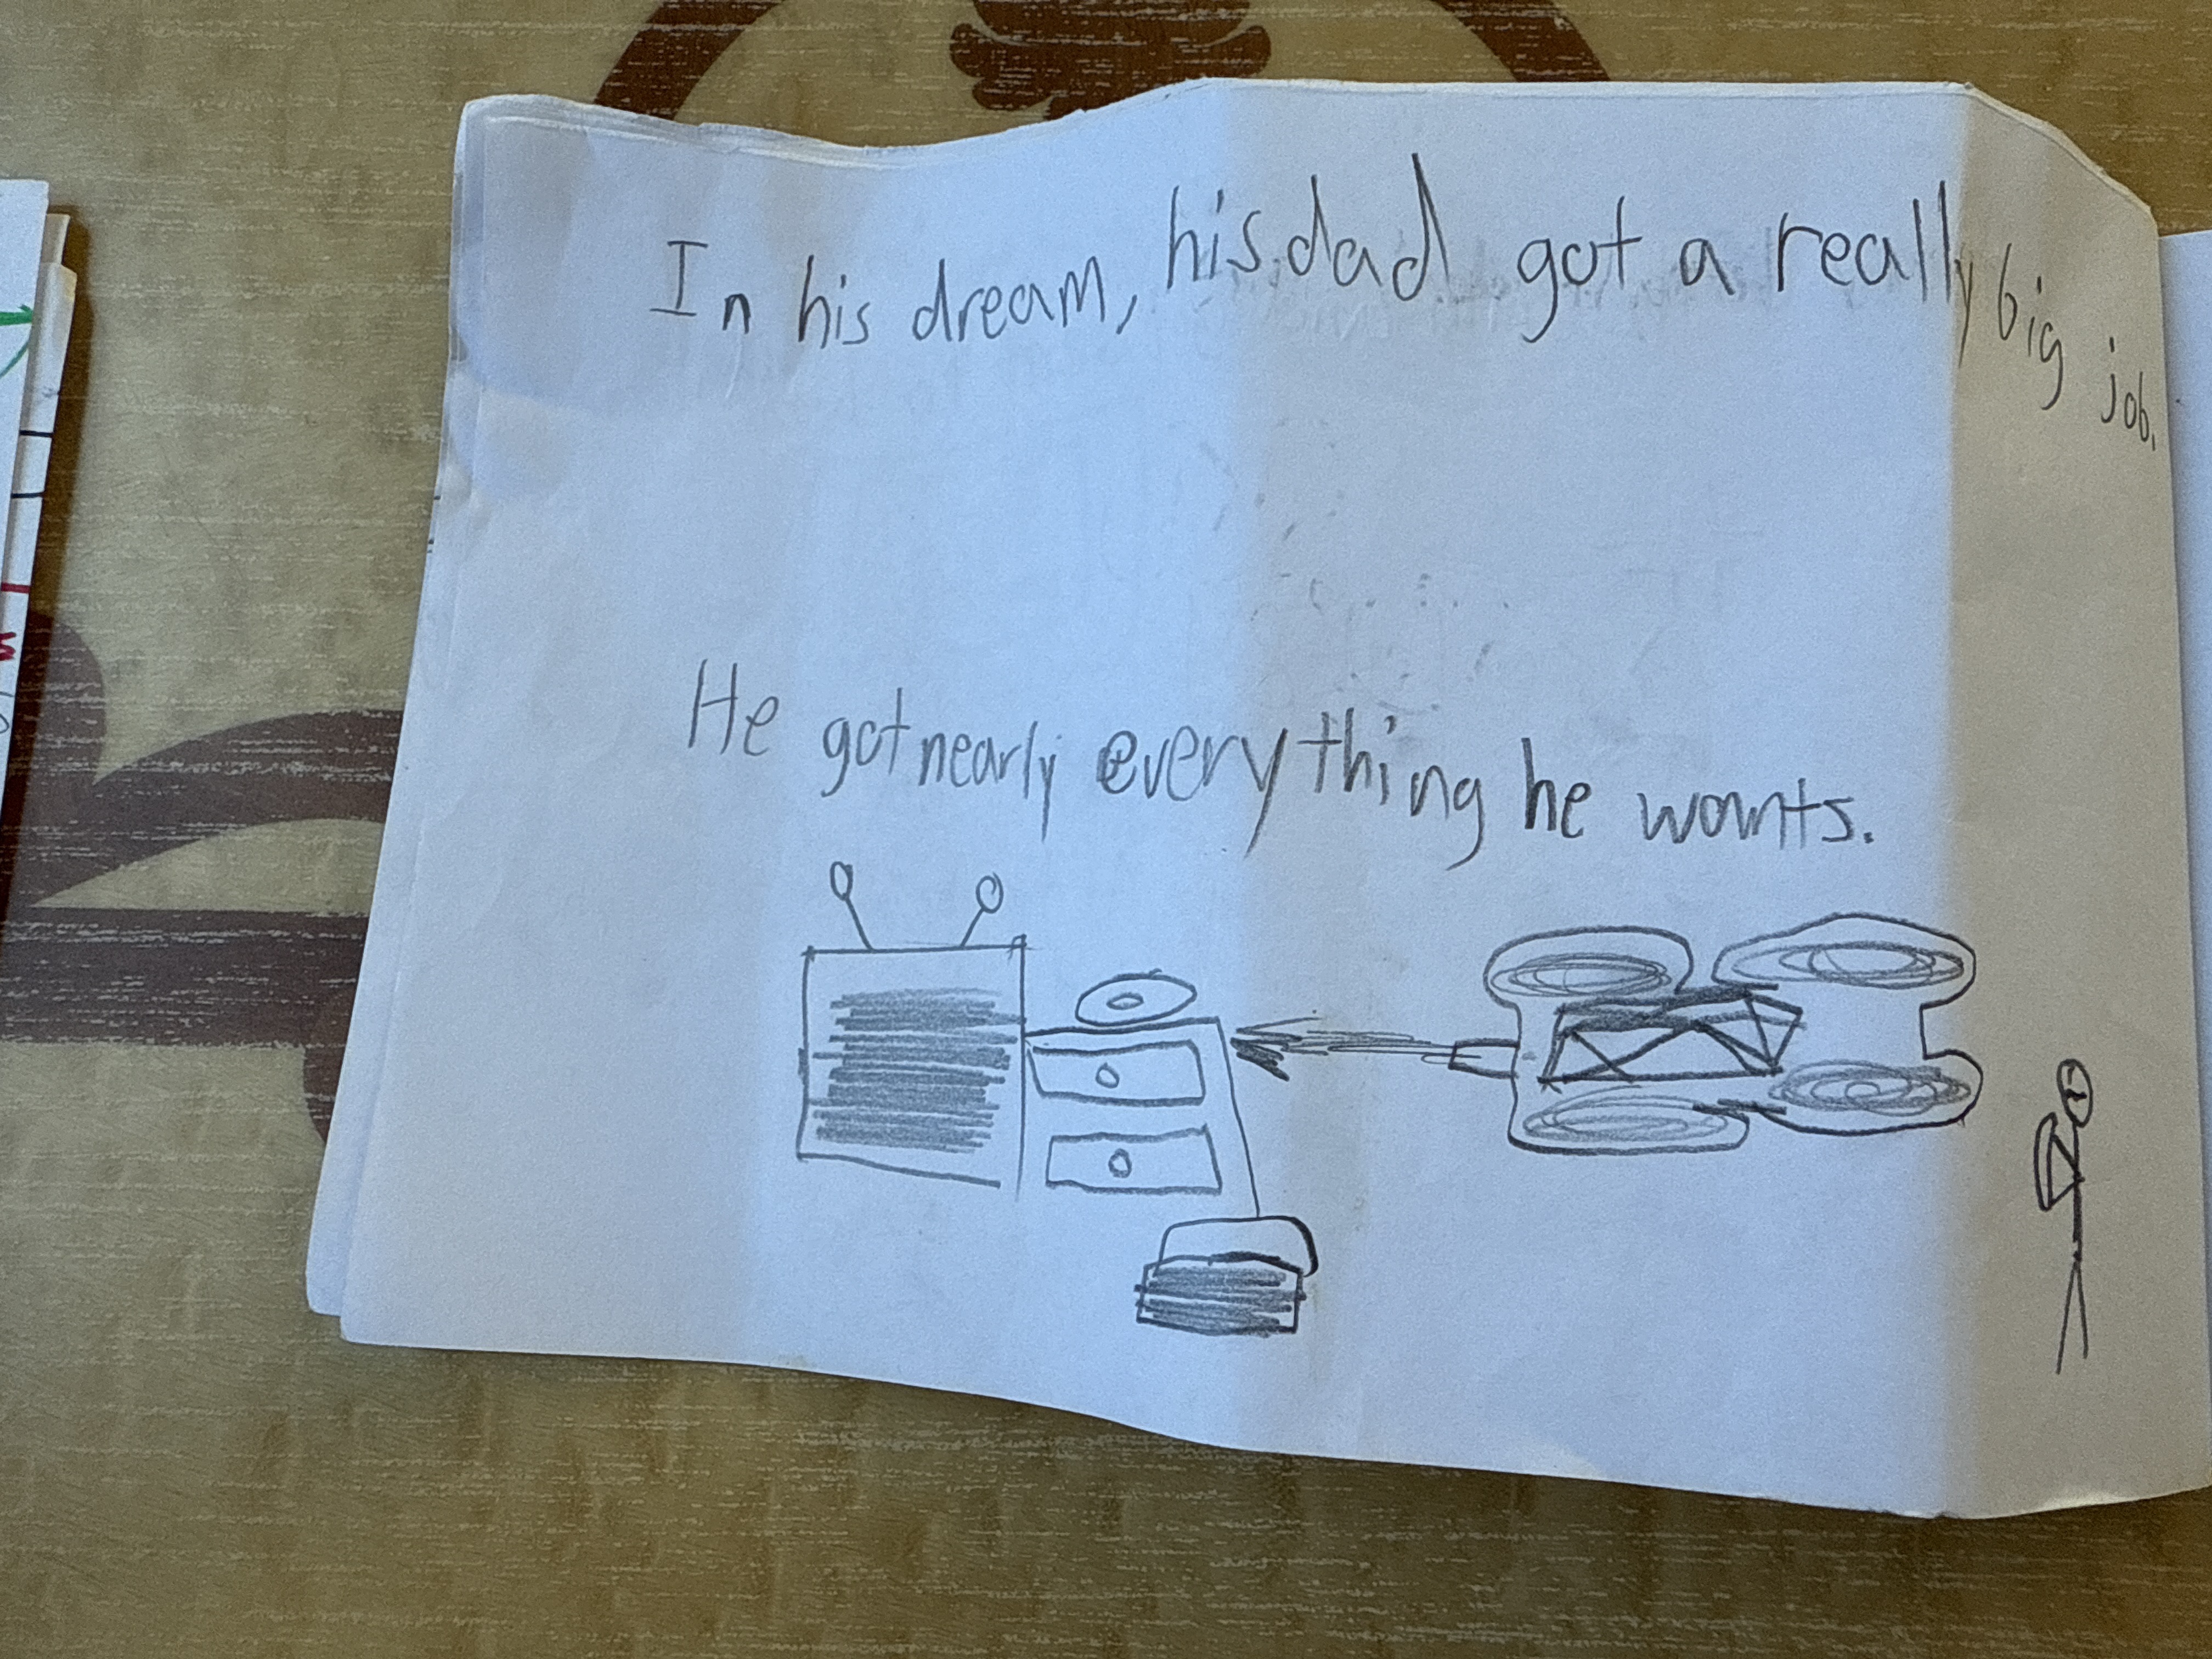 In his dream, his dad got a really big job,
He got nearly everything he wants.